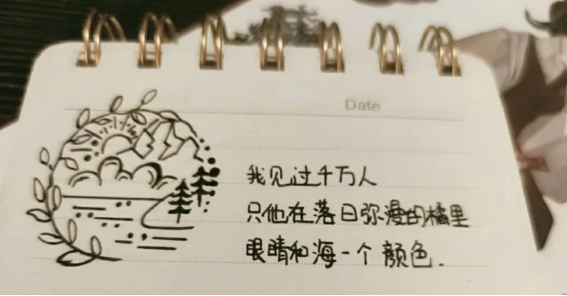 Date
我见过千万人
只他在落日弥漫的橘里
眼睛和海一个颜色.